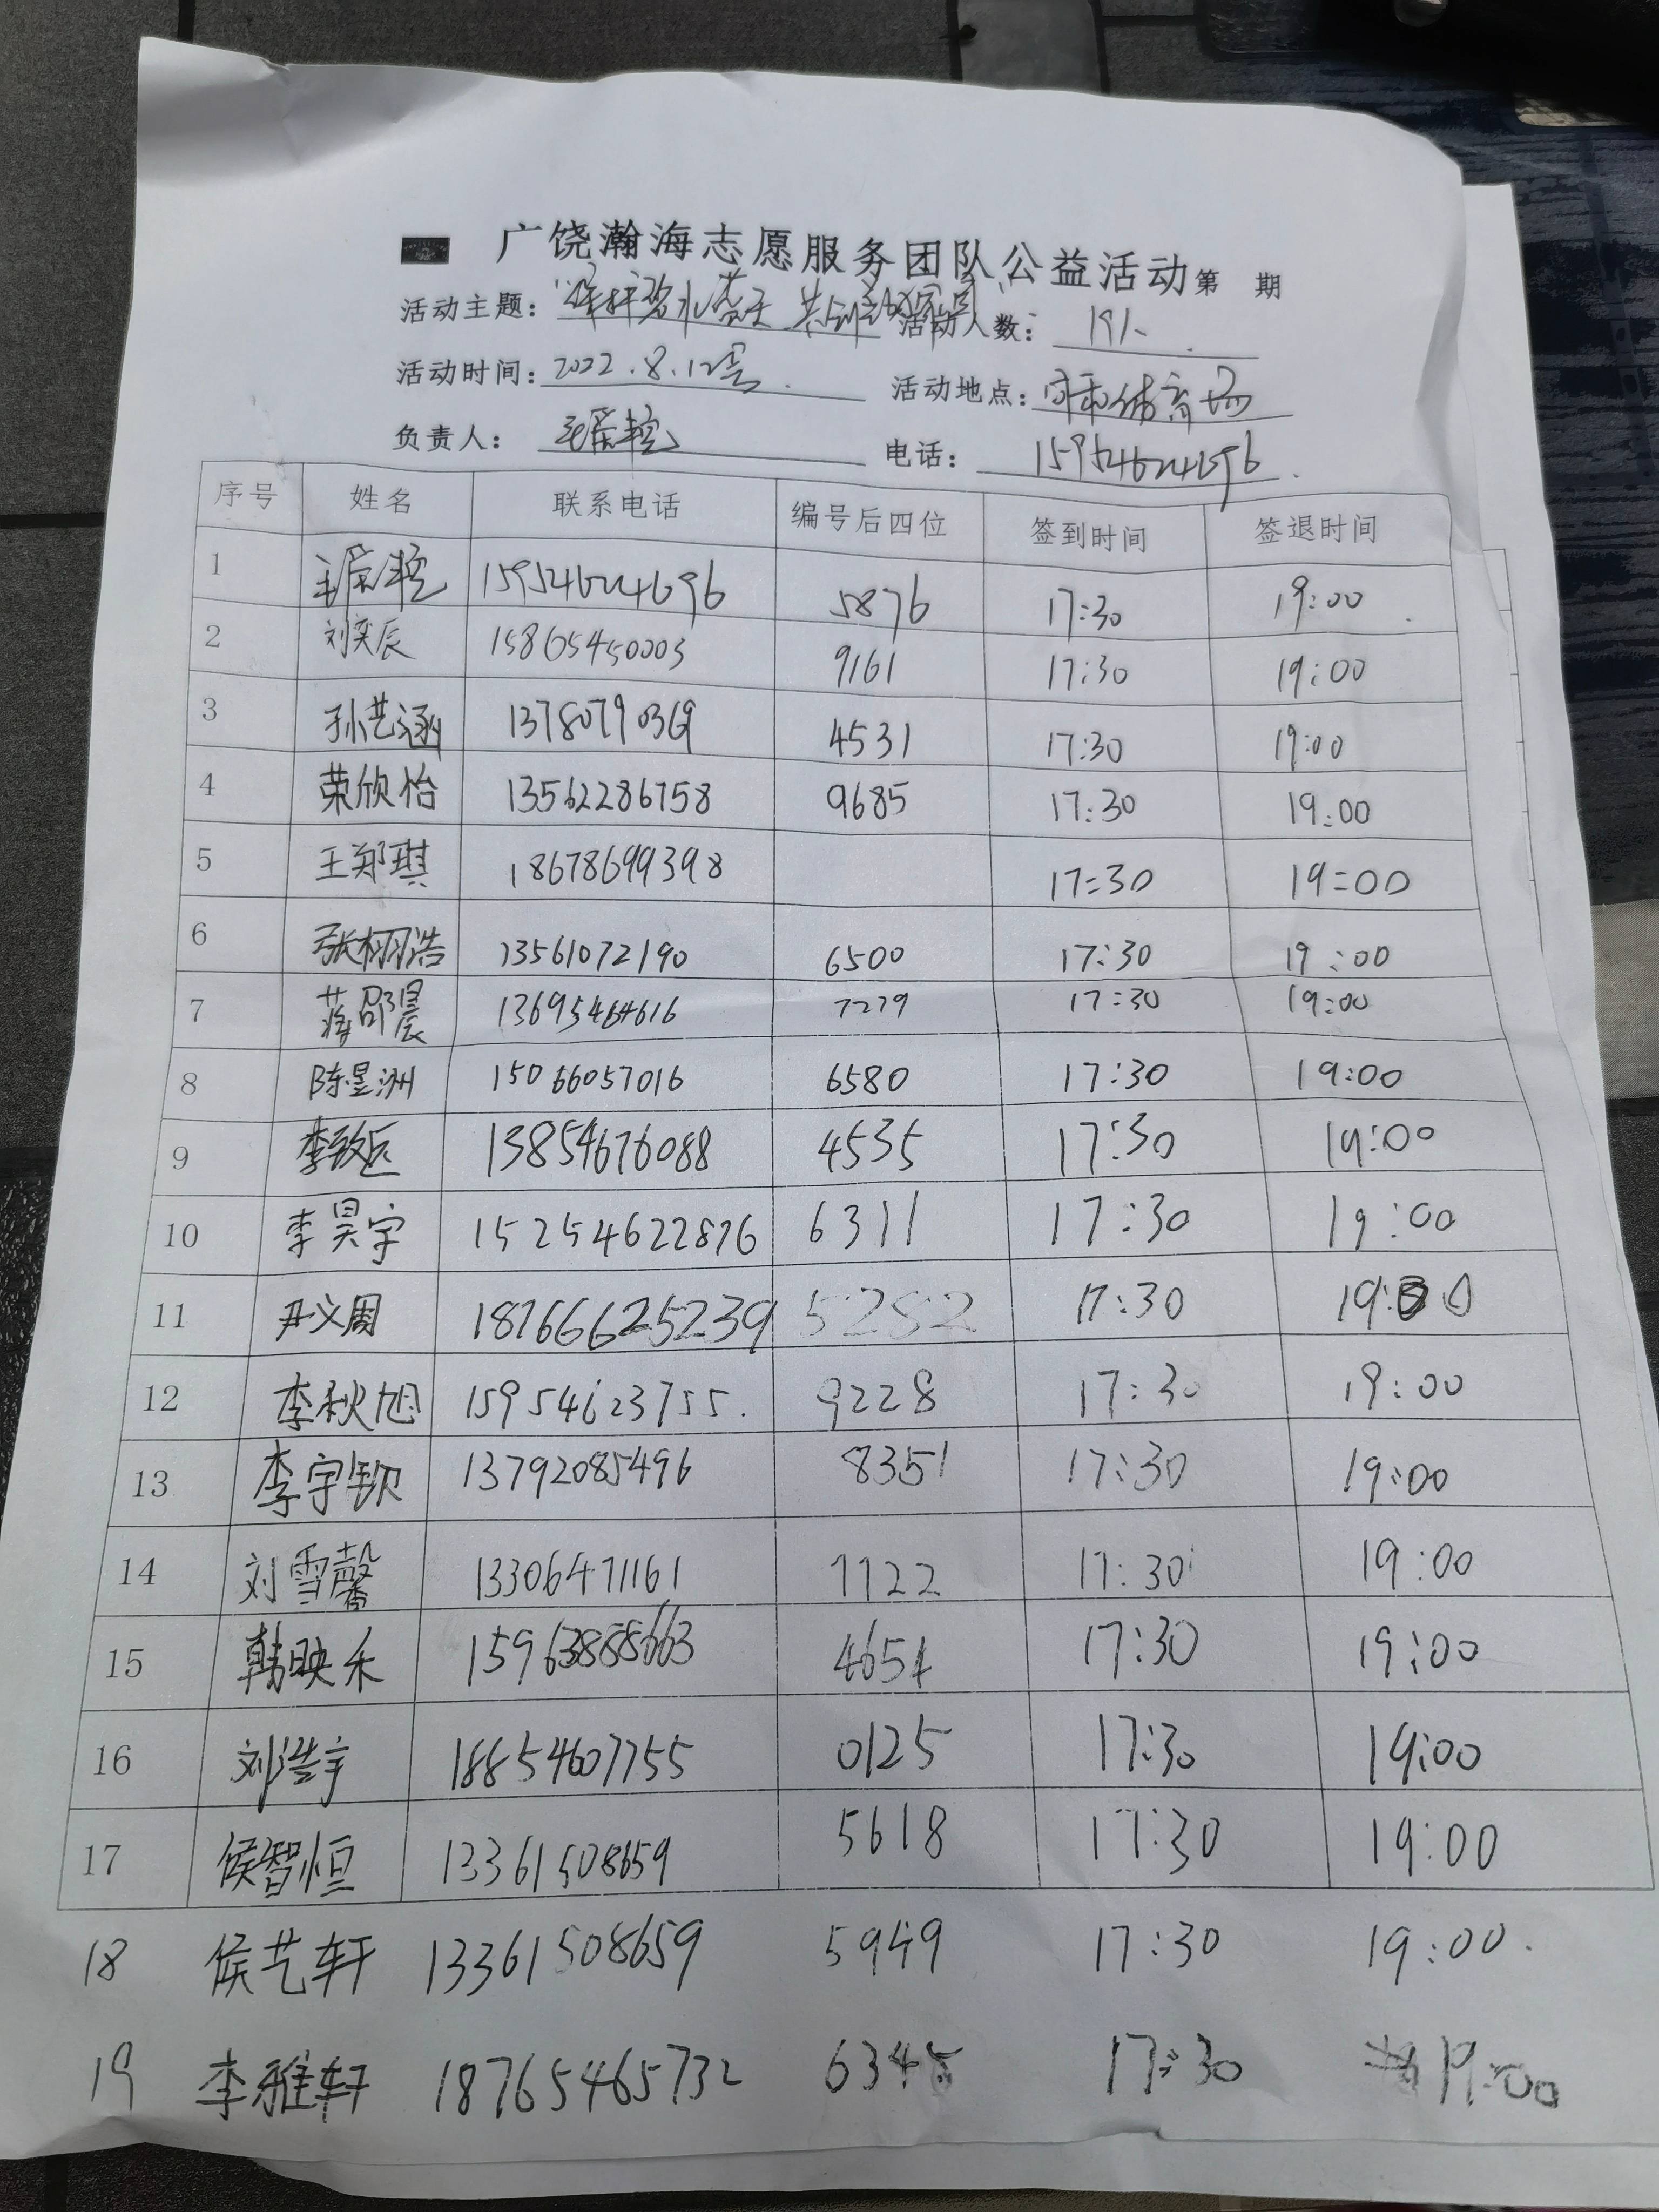 广饶瀚海志愿服务团队公益活动第 期
活动主题: 保持碧水蓝天 共创 家园 活动人数: 19人
活动时间: 2022.8.12 活动地点: 体育场
负责人: 电话: 15954624696
序号 姓名 联系电话 编号后四位 签到时间 签退时间
1 15954624696 5876 17:30 19:00
2 刘奕辰 15865450003 9161 17:30 19:00
3 孙艺涵 13780790369 4531 17:30 19:00
4 荣欣怡 13562286758 9685 17:30 19:00
5 王郑琪 18678699398 17:30 19:00
6 张栩浩 13561072190 6500 17:30 19:00
7 蒋邵晨 13695464616 7279 17:30 19:00
8 陈星洲 15066057016 6580 17:30 19:00
9 李致远 13854676088 4535 17:30 19:00
10 李昊宇 15254622876 6311 17:30 19:00
11 尹义周 18766625239 5282 17:30 19:00
12 李秋旭 15954623755 9228 17:30 19:00
13 李宇钡 13792085496 8351 17:30 19:00
14 刘雪馨 13306471161 7722 17:30 19:00
15 韩映禾 15963888663 4654 17:30 19:00
16 刘浩宇 18854607755 0125 17:30 19:00
17 侯智恒 13361508659 5618 17:30 19:00
18 侯艺轩 13361508659 5949 17:30 19:00
19 李雅轩 18765465732 6345 17:30 19:00